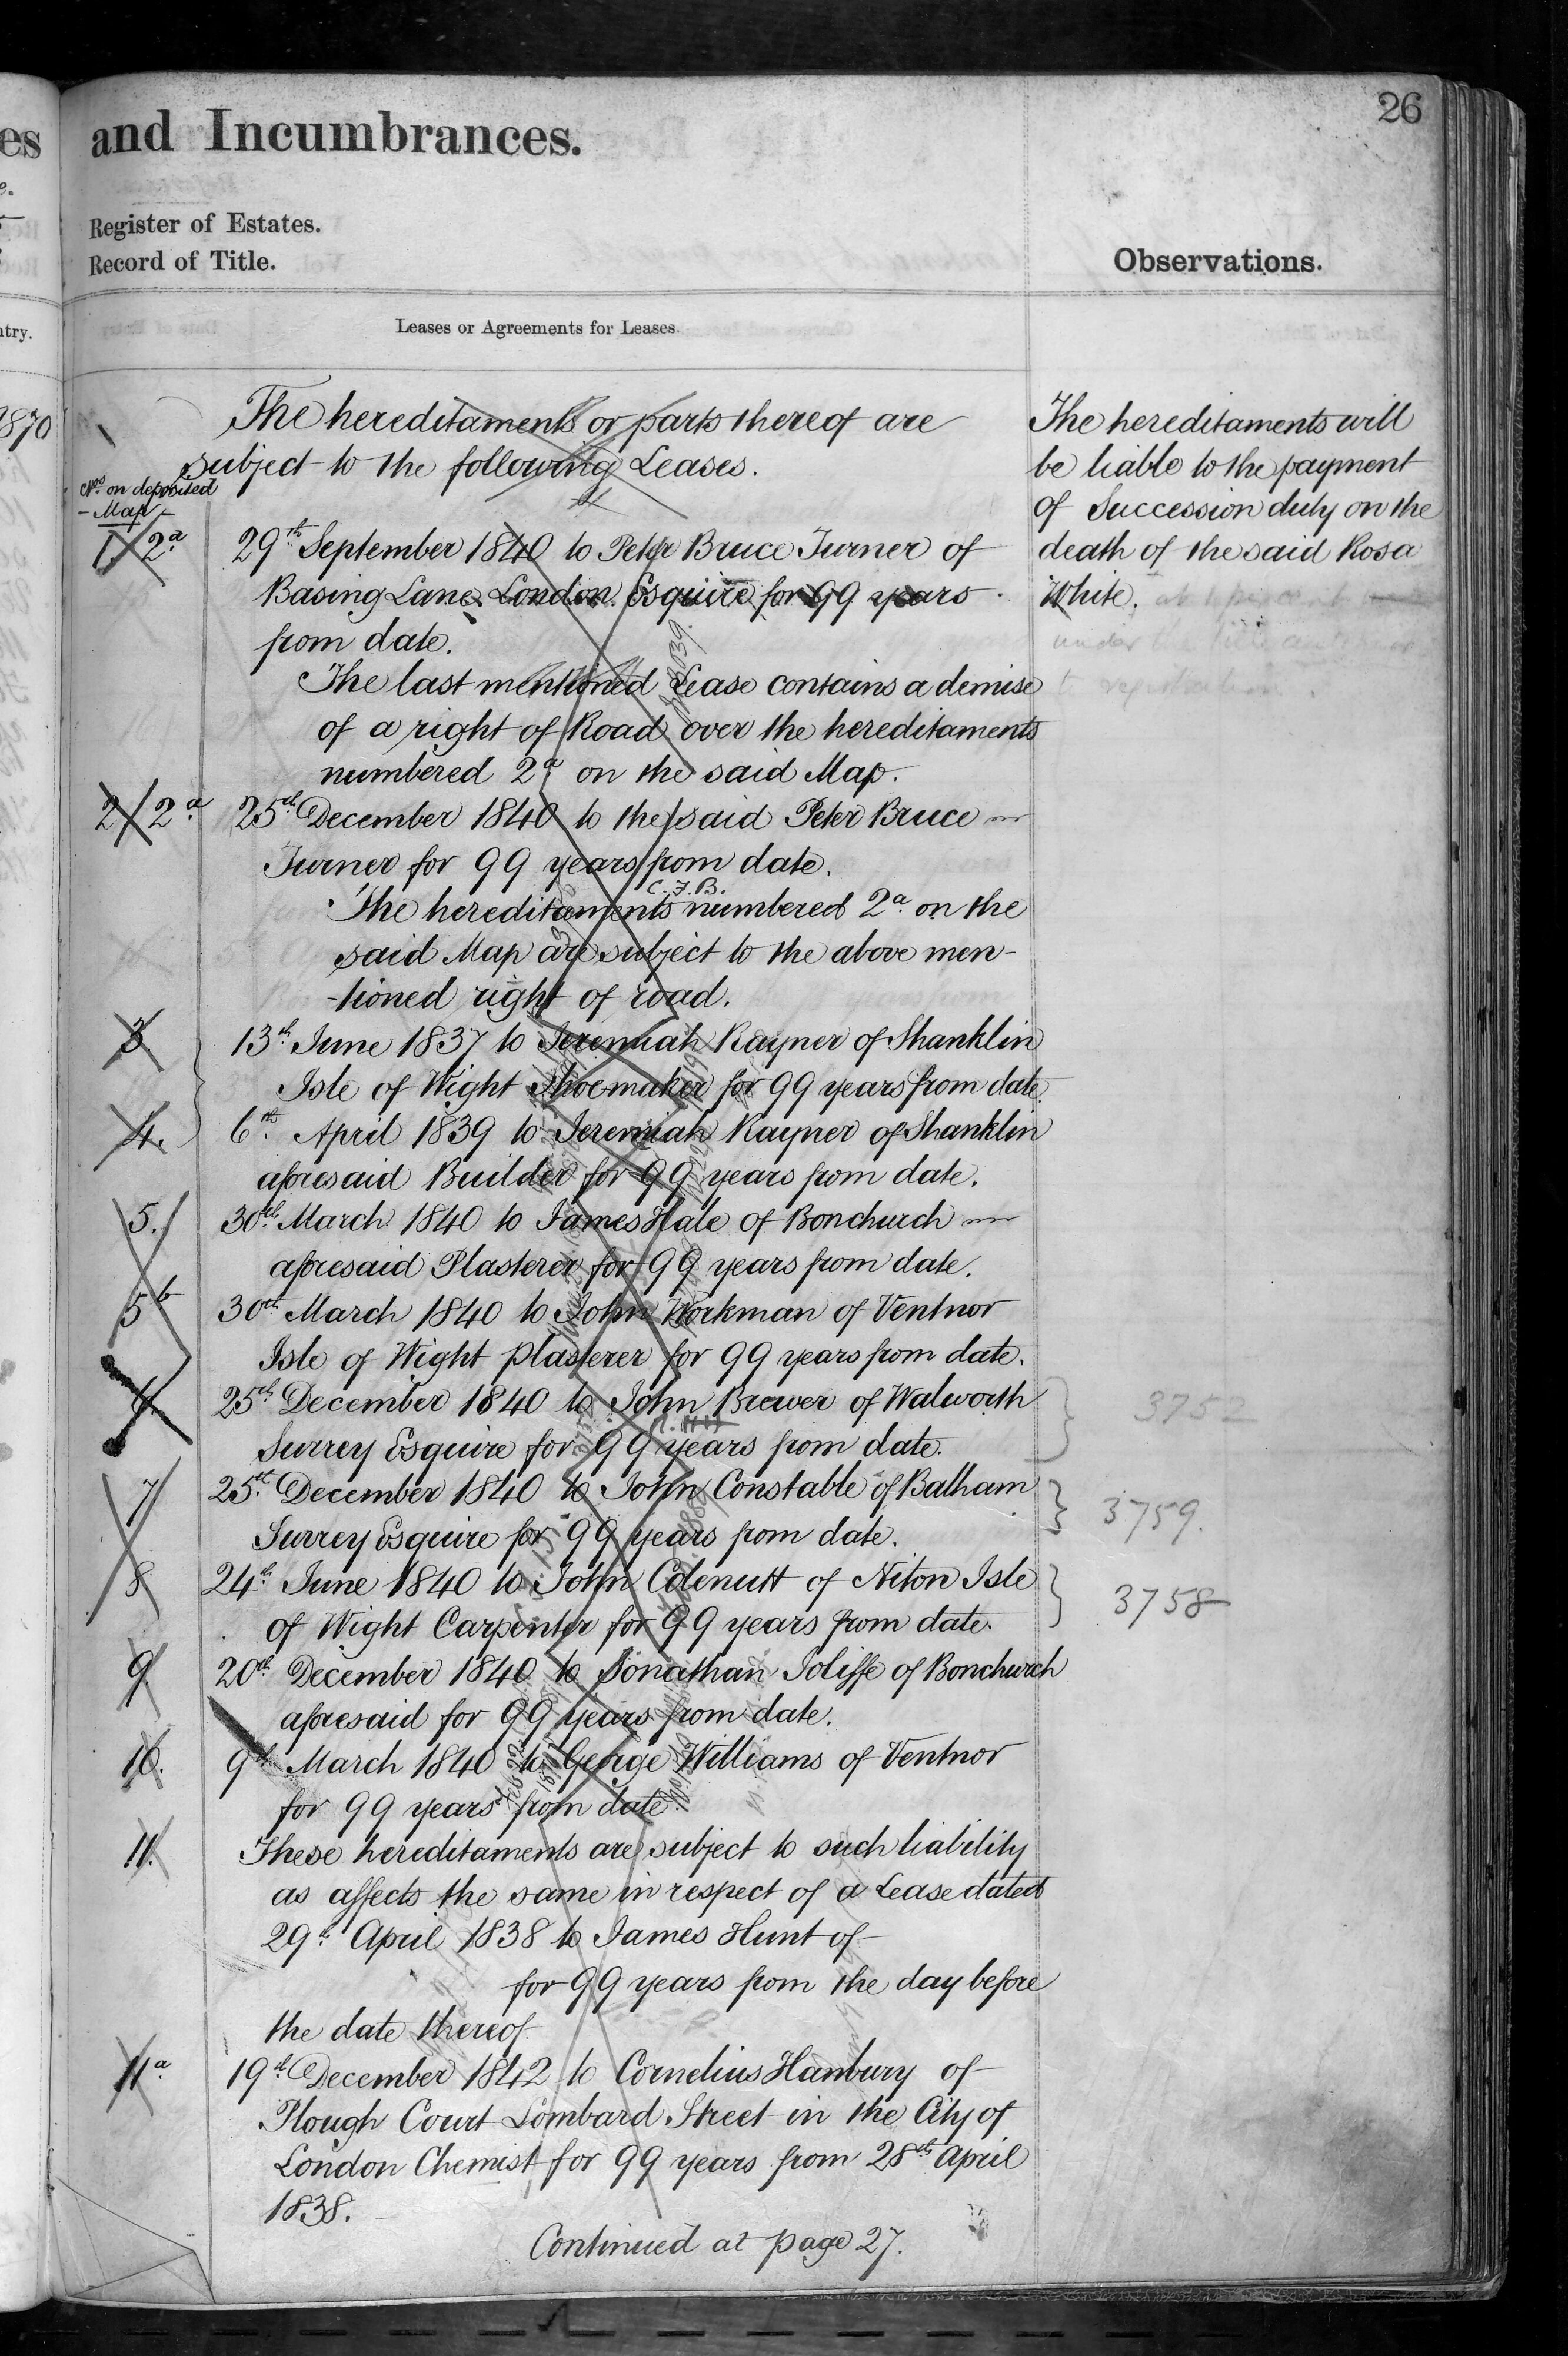 26
es and Incumbrances.
Register of Estates.
Record of Title.
Observations.
ntry.
Leases or Agreements for Leases.
1870
The hereditaments or parts thereof are
subject to the following Leases.
Nos. on deposited
- Map -
1 / 2a 29th September 1840 to Peter Bruce Turner of
Basing Lane London Esquire for 99 years
from date.
The last mentioned Lease contains a demise
of a right of Road over the hereditaments
numbered 2a on the said Map.
2 / 2a 25th December 1840 to the said Peter Bruce
Turner for 99 years from date.
C.F.B.
The hereditaments numbered 2a on the
said Map are subject to the above men-
-tioned right of road.
3. 13th June 1837 to Jeremiah Rayner of Shanklin
Isle of Wight Shoemaker for 99 years from date
4. 6th April 1839 to Jeremiah Rayner of Shanklin
aforesaid Builder for 99 years from date.
5. 30th March 1840 to James Hale of Bonchurch
aforesaid Plasterer for 99 years from date.
5b 30th March 1840 to John Workman of Ventnor
Isle of Wight plasterer for 99 years from date.
25th December 1840 to John Brewer of Walworth
Surrey Esquire for 99 years from date.
7 25th December 1840 to John Constable of Balham
Surrey Esquire for 99 years from date.
8 24th June 1840 to John Colenutt of Niton Isle
of Wight Carpenter for 99 years from date.
9. 20th December 1840 to Jonathan Joliffe of Bonchurch
aforesaid for 99 years from date.
10. 9th March 1840 to George Williams of Ventnor
for 99 years from date.
11. These hereditaments are subject to such liability
as affects the same in respect of a Lease dated
29th April 1838 to James Hunt of
for 99 years from the day before
the date thereof.
11a 19th December 1842 to Cornelius Hanbury of
Plough Court Lombard Street in the City of
London Chemist for 99 years from 28th April
1838.
Continued at page 27.
The hereditaments will
be liable to the payment
of Succession duty on the
death of the said Rosa
White.
3752
3759.
3758